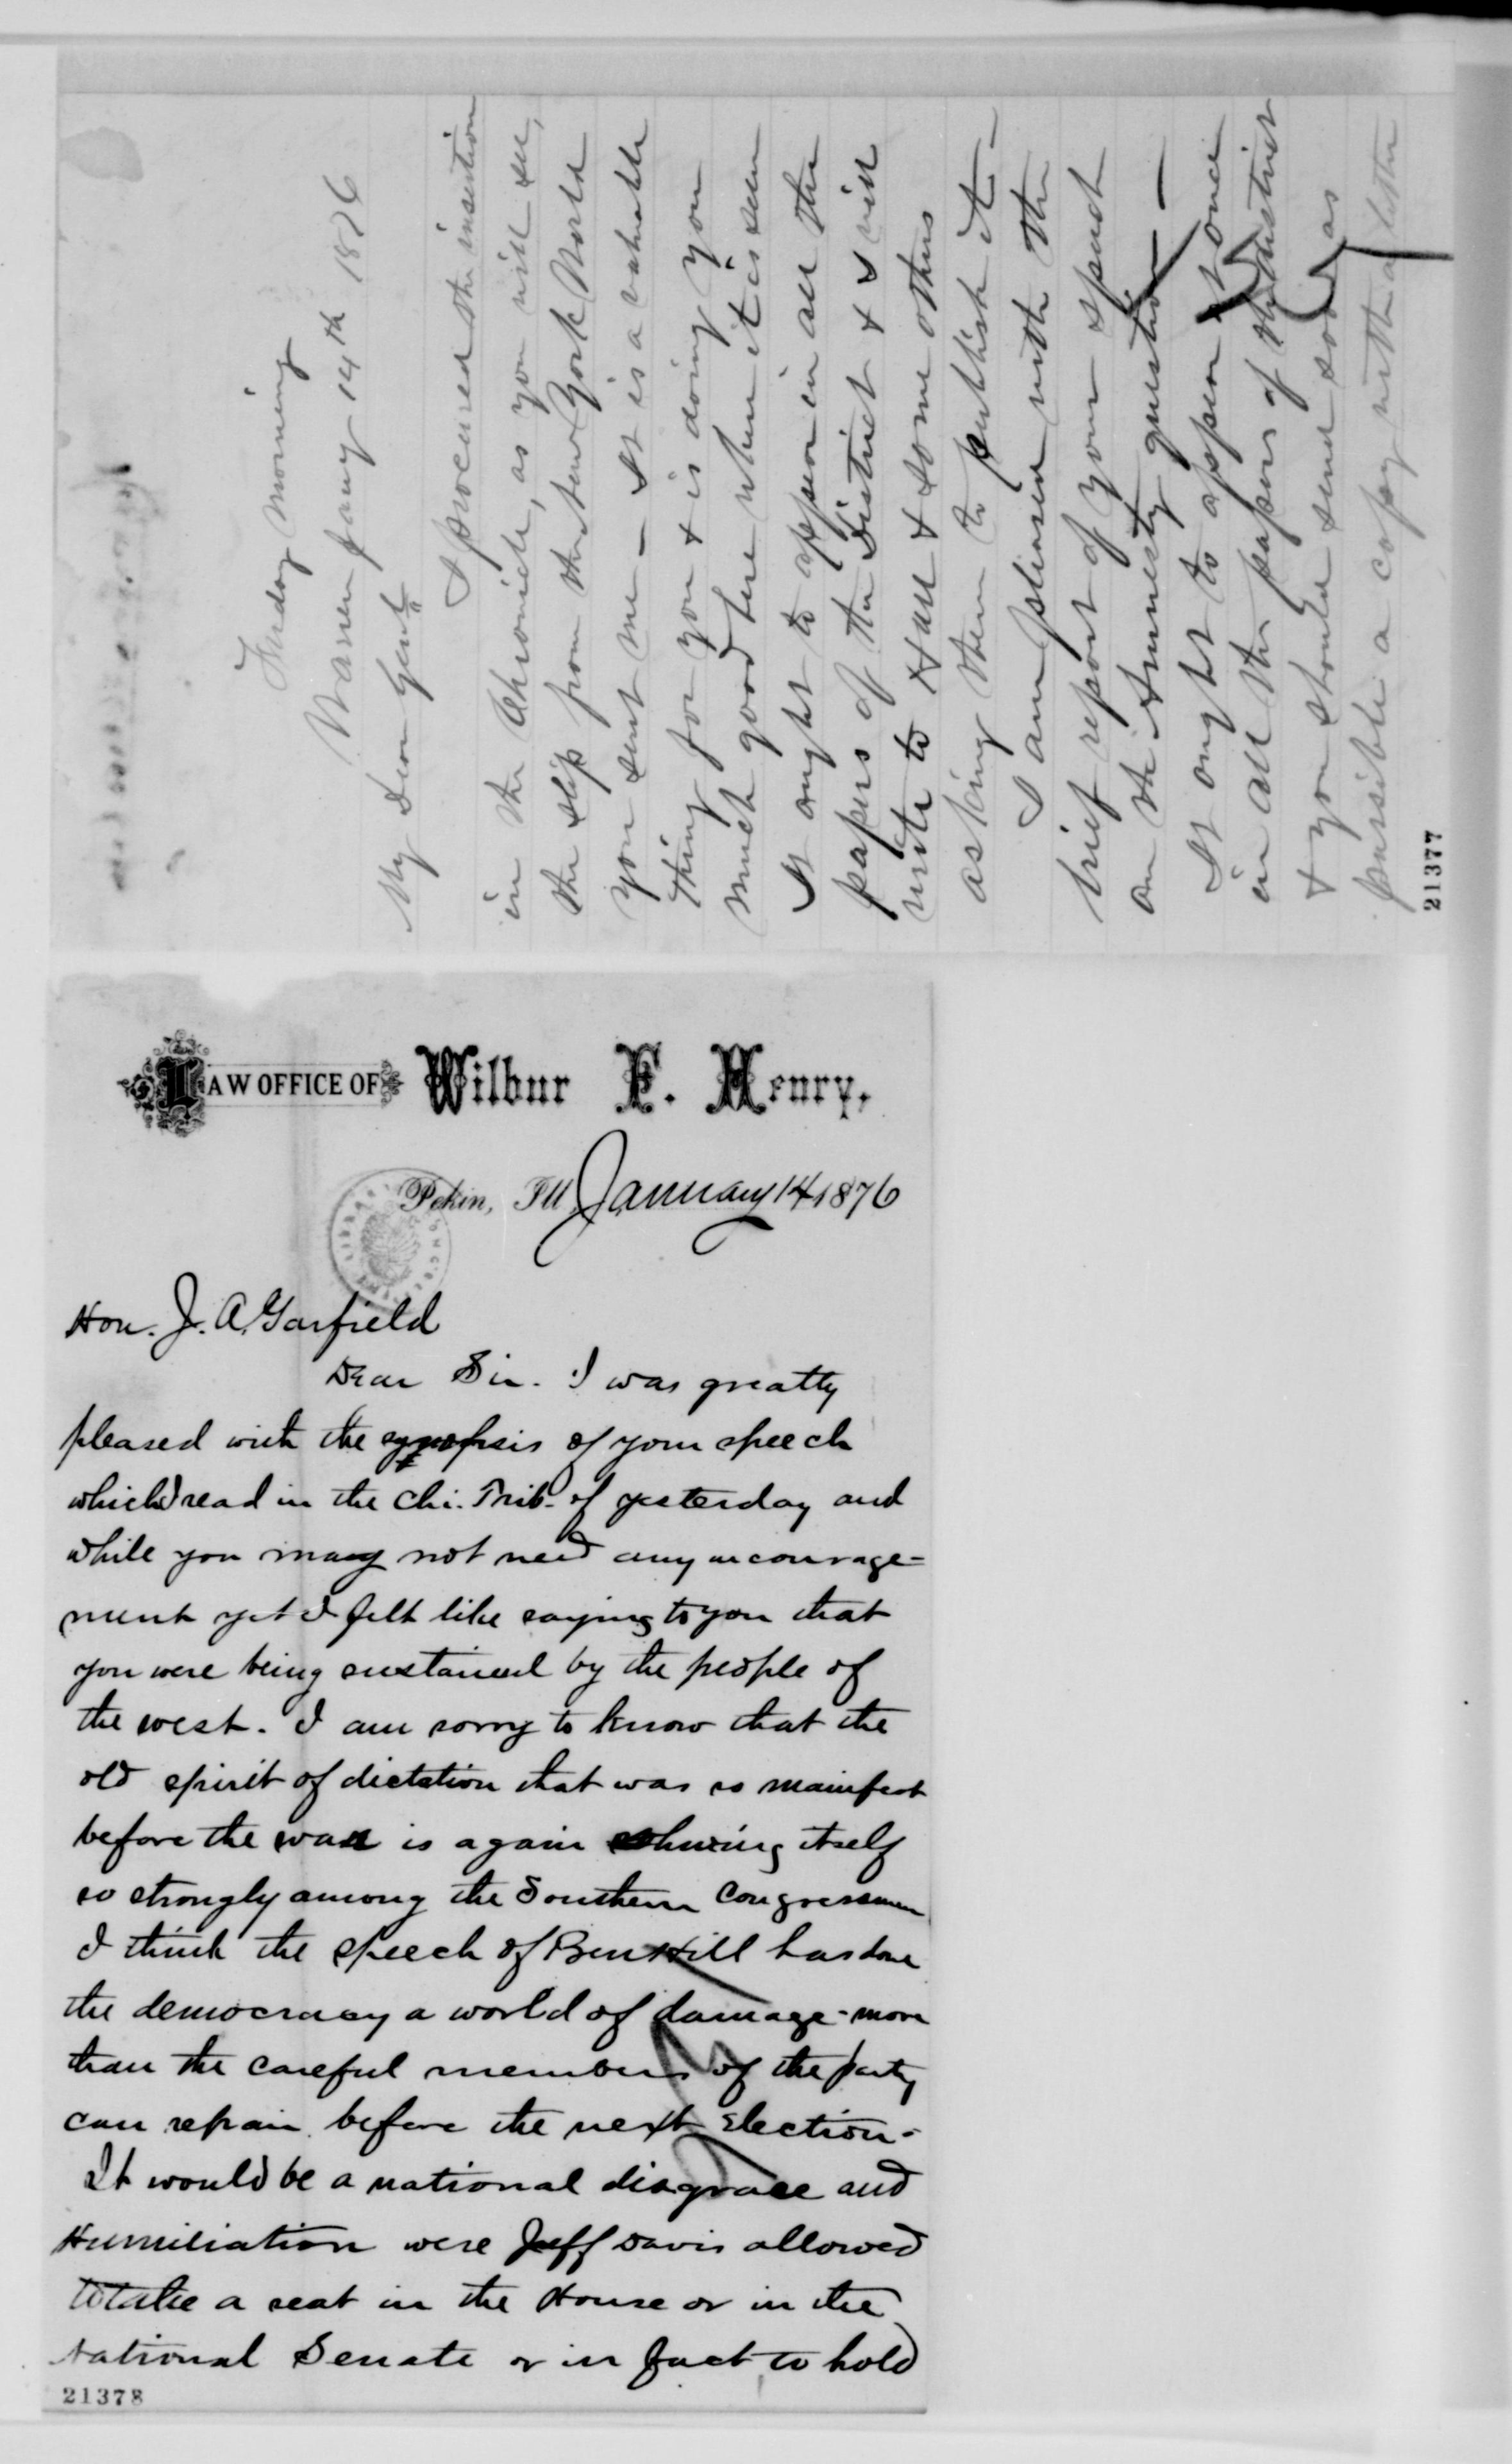 Friday morning
Warren Jany 14th 1876
My Dear Genl
I procured the insertion
in the Chronicle, as you will see,
the slip from the New York World
you sent me - It is a valuable
thing for you & is doing you
much good here where it is seen
It ought to appear in all the
papers of the District & I will
write to Hall & some others
asking them to publish it -
I am pleased with the
brief report of your speech
on the Amnesty question -
It ought to appear at once
in all the papers of the District
& you should send soon as
possible a copy with a letter
21377
LAW OFFICE OF Wilbur F. Henry,
Pekin, Ill January 14 1876
Hon. J. A. Garfield
Dear Sir. I was greatly
pleased with the synopsis of your speech
which I read in the Chi. Trib. of yesterday and
while you may not need any encourage-
ment yet I felt like saying to you that
you were being sustained by the people of
the west. I am sorry to know that the
old spirit of dictation that was so manifest
before the war is again showing itself
so strongly among the Southern Congressmen
I think the speech of Ben Hill has done
the democracy a world of damage - more
than the careful members of the party
can repair before the next election -
It would be a national disgrace and
Humiliation were Jeff Davis allowed
to take a seat in the House or in the
National Senate or in fact to hold
21378